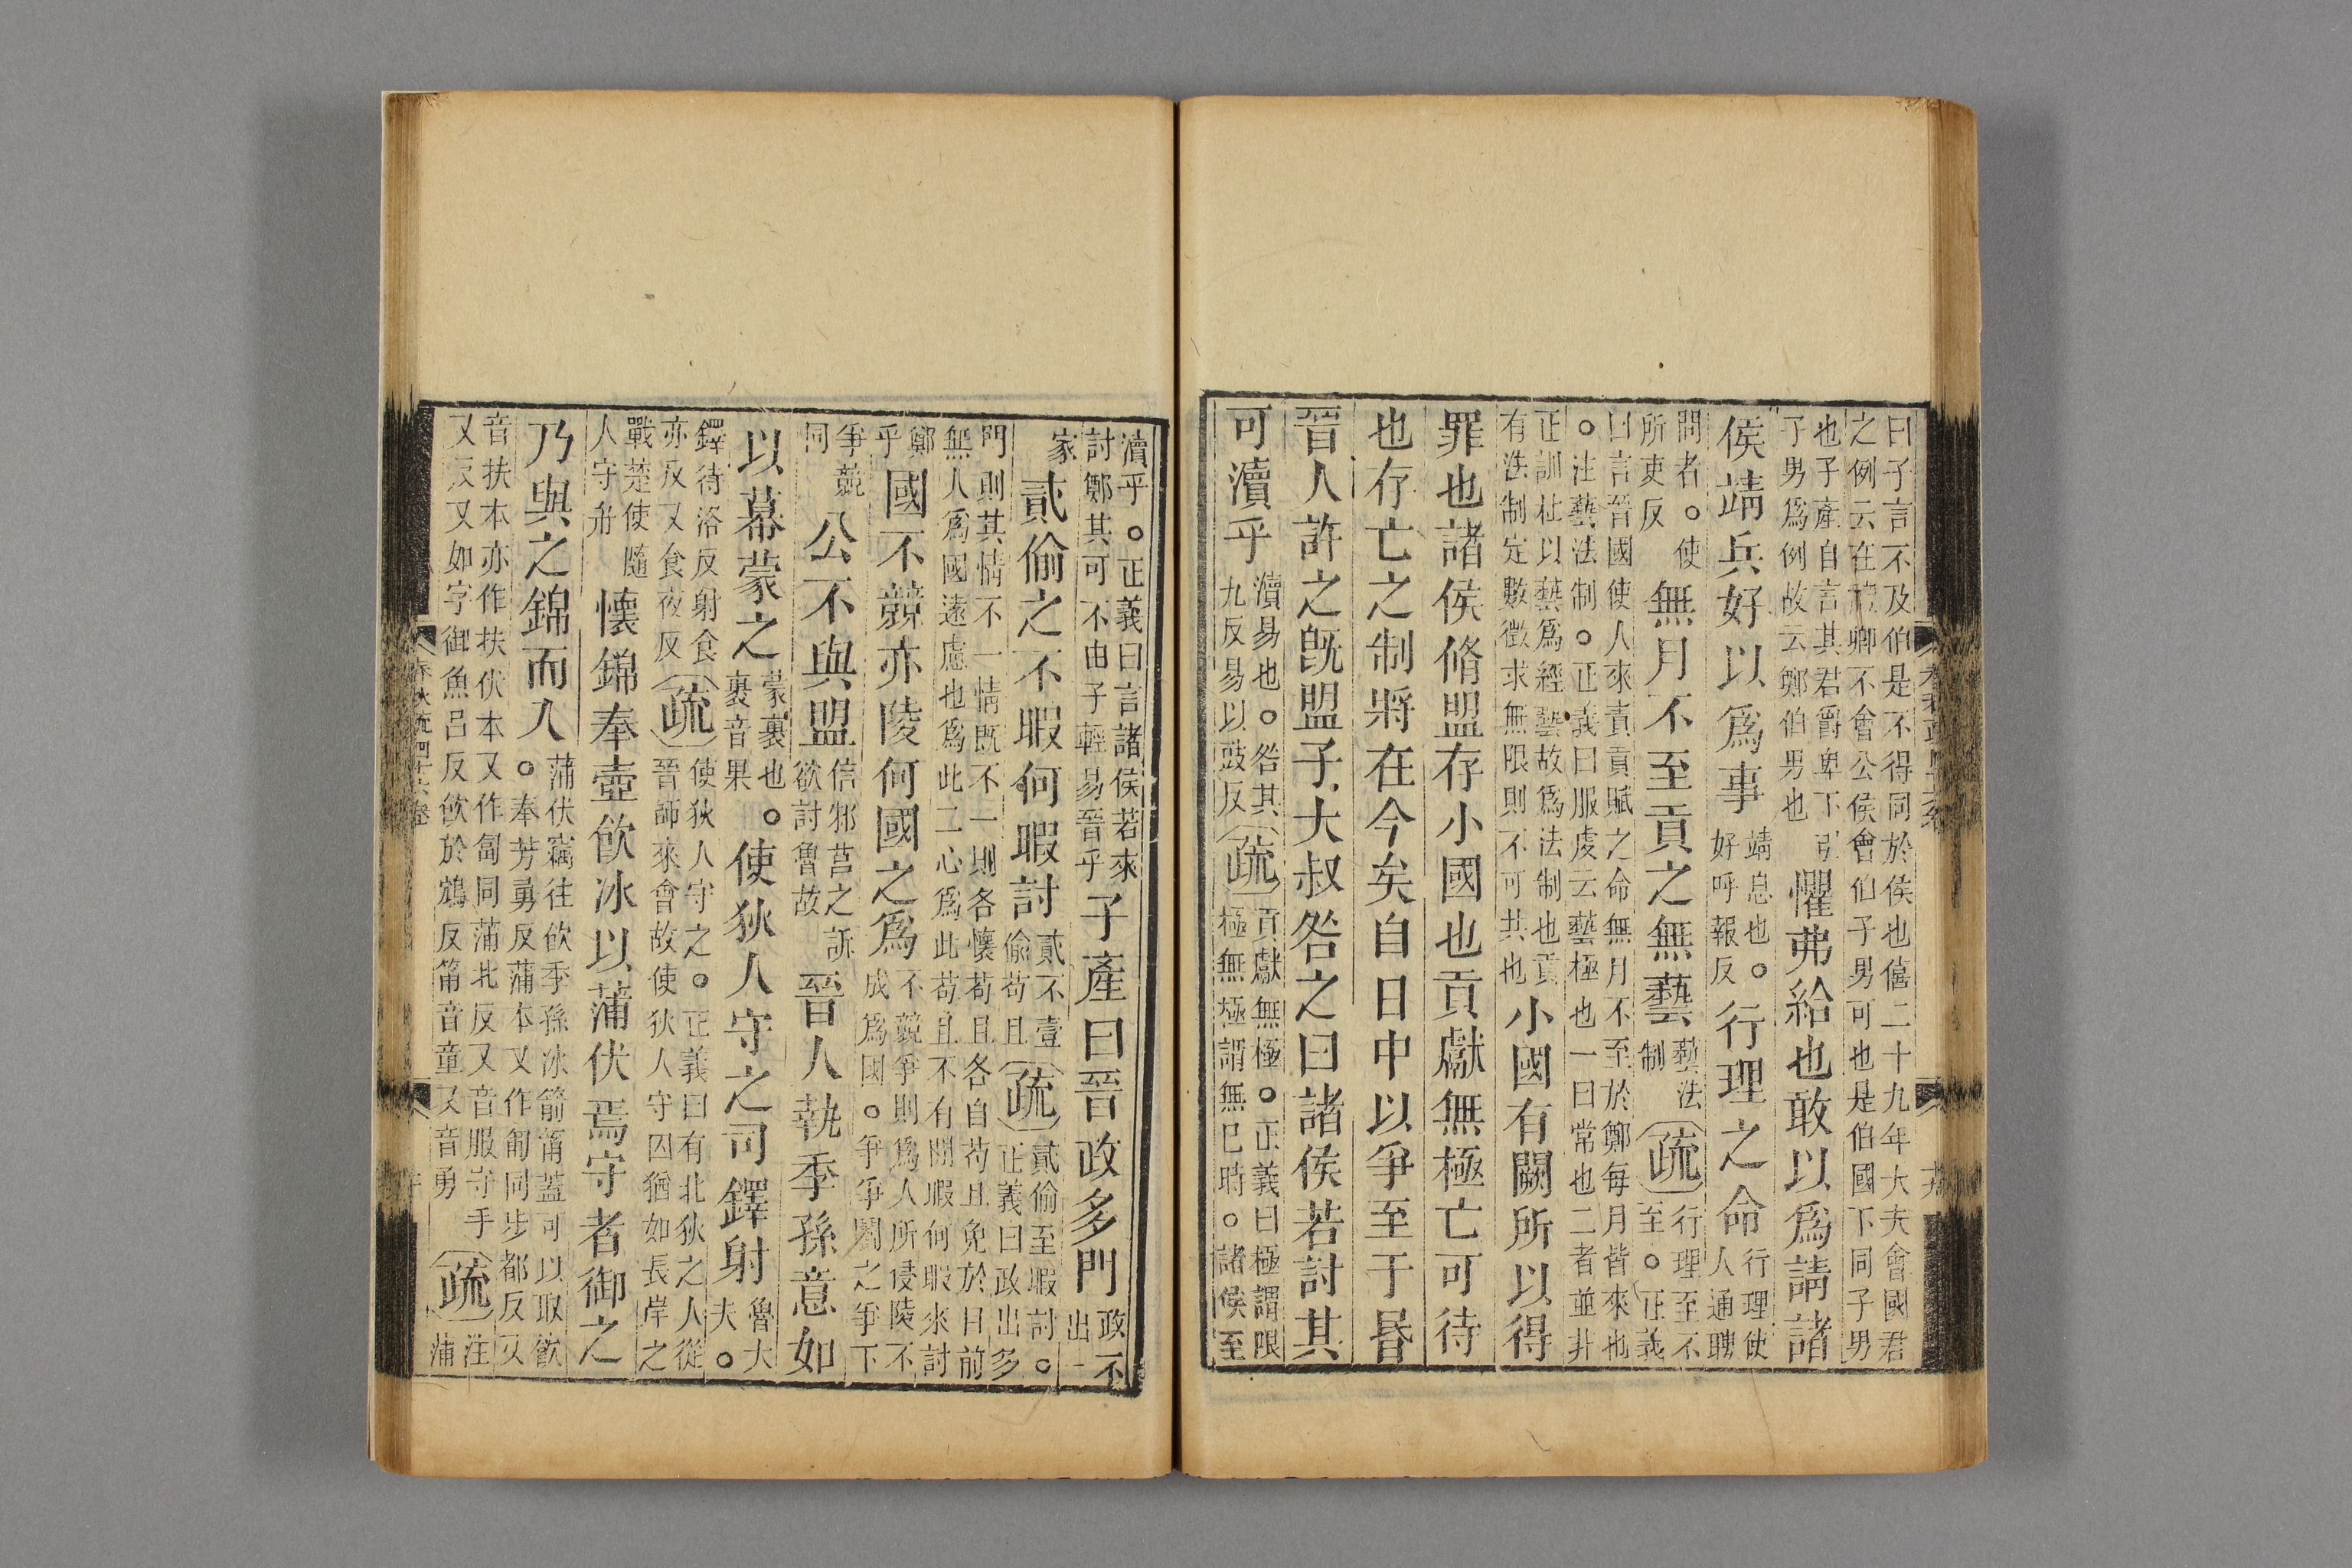 曰子言不及伯是不得同於侯也僖二十九年大夫會國君
之例云在禮卿不會公侯會伯子男可也是伯國下同子男
也子產自言其君爵卑下引
子男爲例故云鄭伯男也
懼弗給也敢以爲請諸
侯靖兵好以爲事
靖息也。
好呼報反
行理之命
行理使
人通聘
問者。使
所吏反
無月不至貢之無藝
藝法
制
疏
行理至不
至。正義
曰言晉國使人來責貢賦之命無月不至於鄭每月皆來也
。注藝法制。正義曰服虔云藝極也一曰常也二者並非
正訓杜以藝爲經藝故爲法制也貢
有法制定數徵求無限則不可共也
小國有闕所以得
罪也諸侯脩盟存小國也貢獻無極亡可待
也存亡之制將在今矣自日中以爭至于昬
晉人許之旣盟子大叔咎之曰諸侯若討其
可瀆乎
瀆易也。咎其
九反易以豉反
疏
貢獻無極。正義曰極謂限
極無極謂無已時。諸侯至
瀆乎。正義曰言諸侯若來
討鄭其可不由子輕易晉乎
子產曰晉政多門
政不
出一
家
貳偷之不暇何暇討
貳不壹
偷苟且
疏
貳偷至暇討。
正義曰政出多
門則其情不一情旣不一則各懷苟且各自苟且免於目前
無人爲國遠慮也爲此二心爲此苟且不有閒暇何暇來討
鄭
乎
國不競亦陵何國之爲
不競爭則爲人所侵陵不
成爲國。爭爭鬭之爭下
爭競
同
公不與盟
信邾莒之訴
欲討魯故
晉人執季孫意如
以幕蒙之
蒙裹也。
裹音果
使狄人守之司鐸射
魯大
夫。
鐸待洛反射食
亦反又食夜反
疏
使狄人守之。正義曰有北狄之人從
晉師來會故使狄人守囚猶如長岸之
戰楚使隨
人守舟
懷錦奉壺飮冰以蒲伏焉守者御之
乃與之錦而入
蒲伏竊往飮季孫冰箭筩蓋可以取飮
。奉芳勇反蒲本又作匍同步都反又
音扶本亦作扶伏本又作匐同蒲北反又音服守手
又反又如字御魚呂反飮於鴆反筩音童又音勇
疏
注
蒲